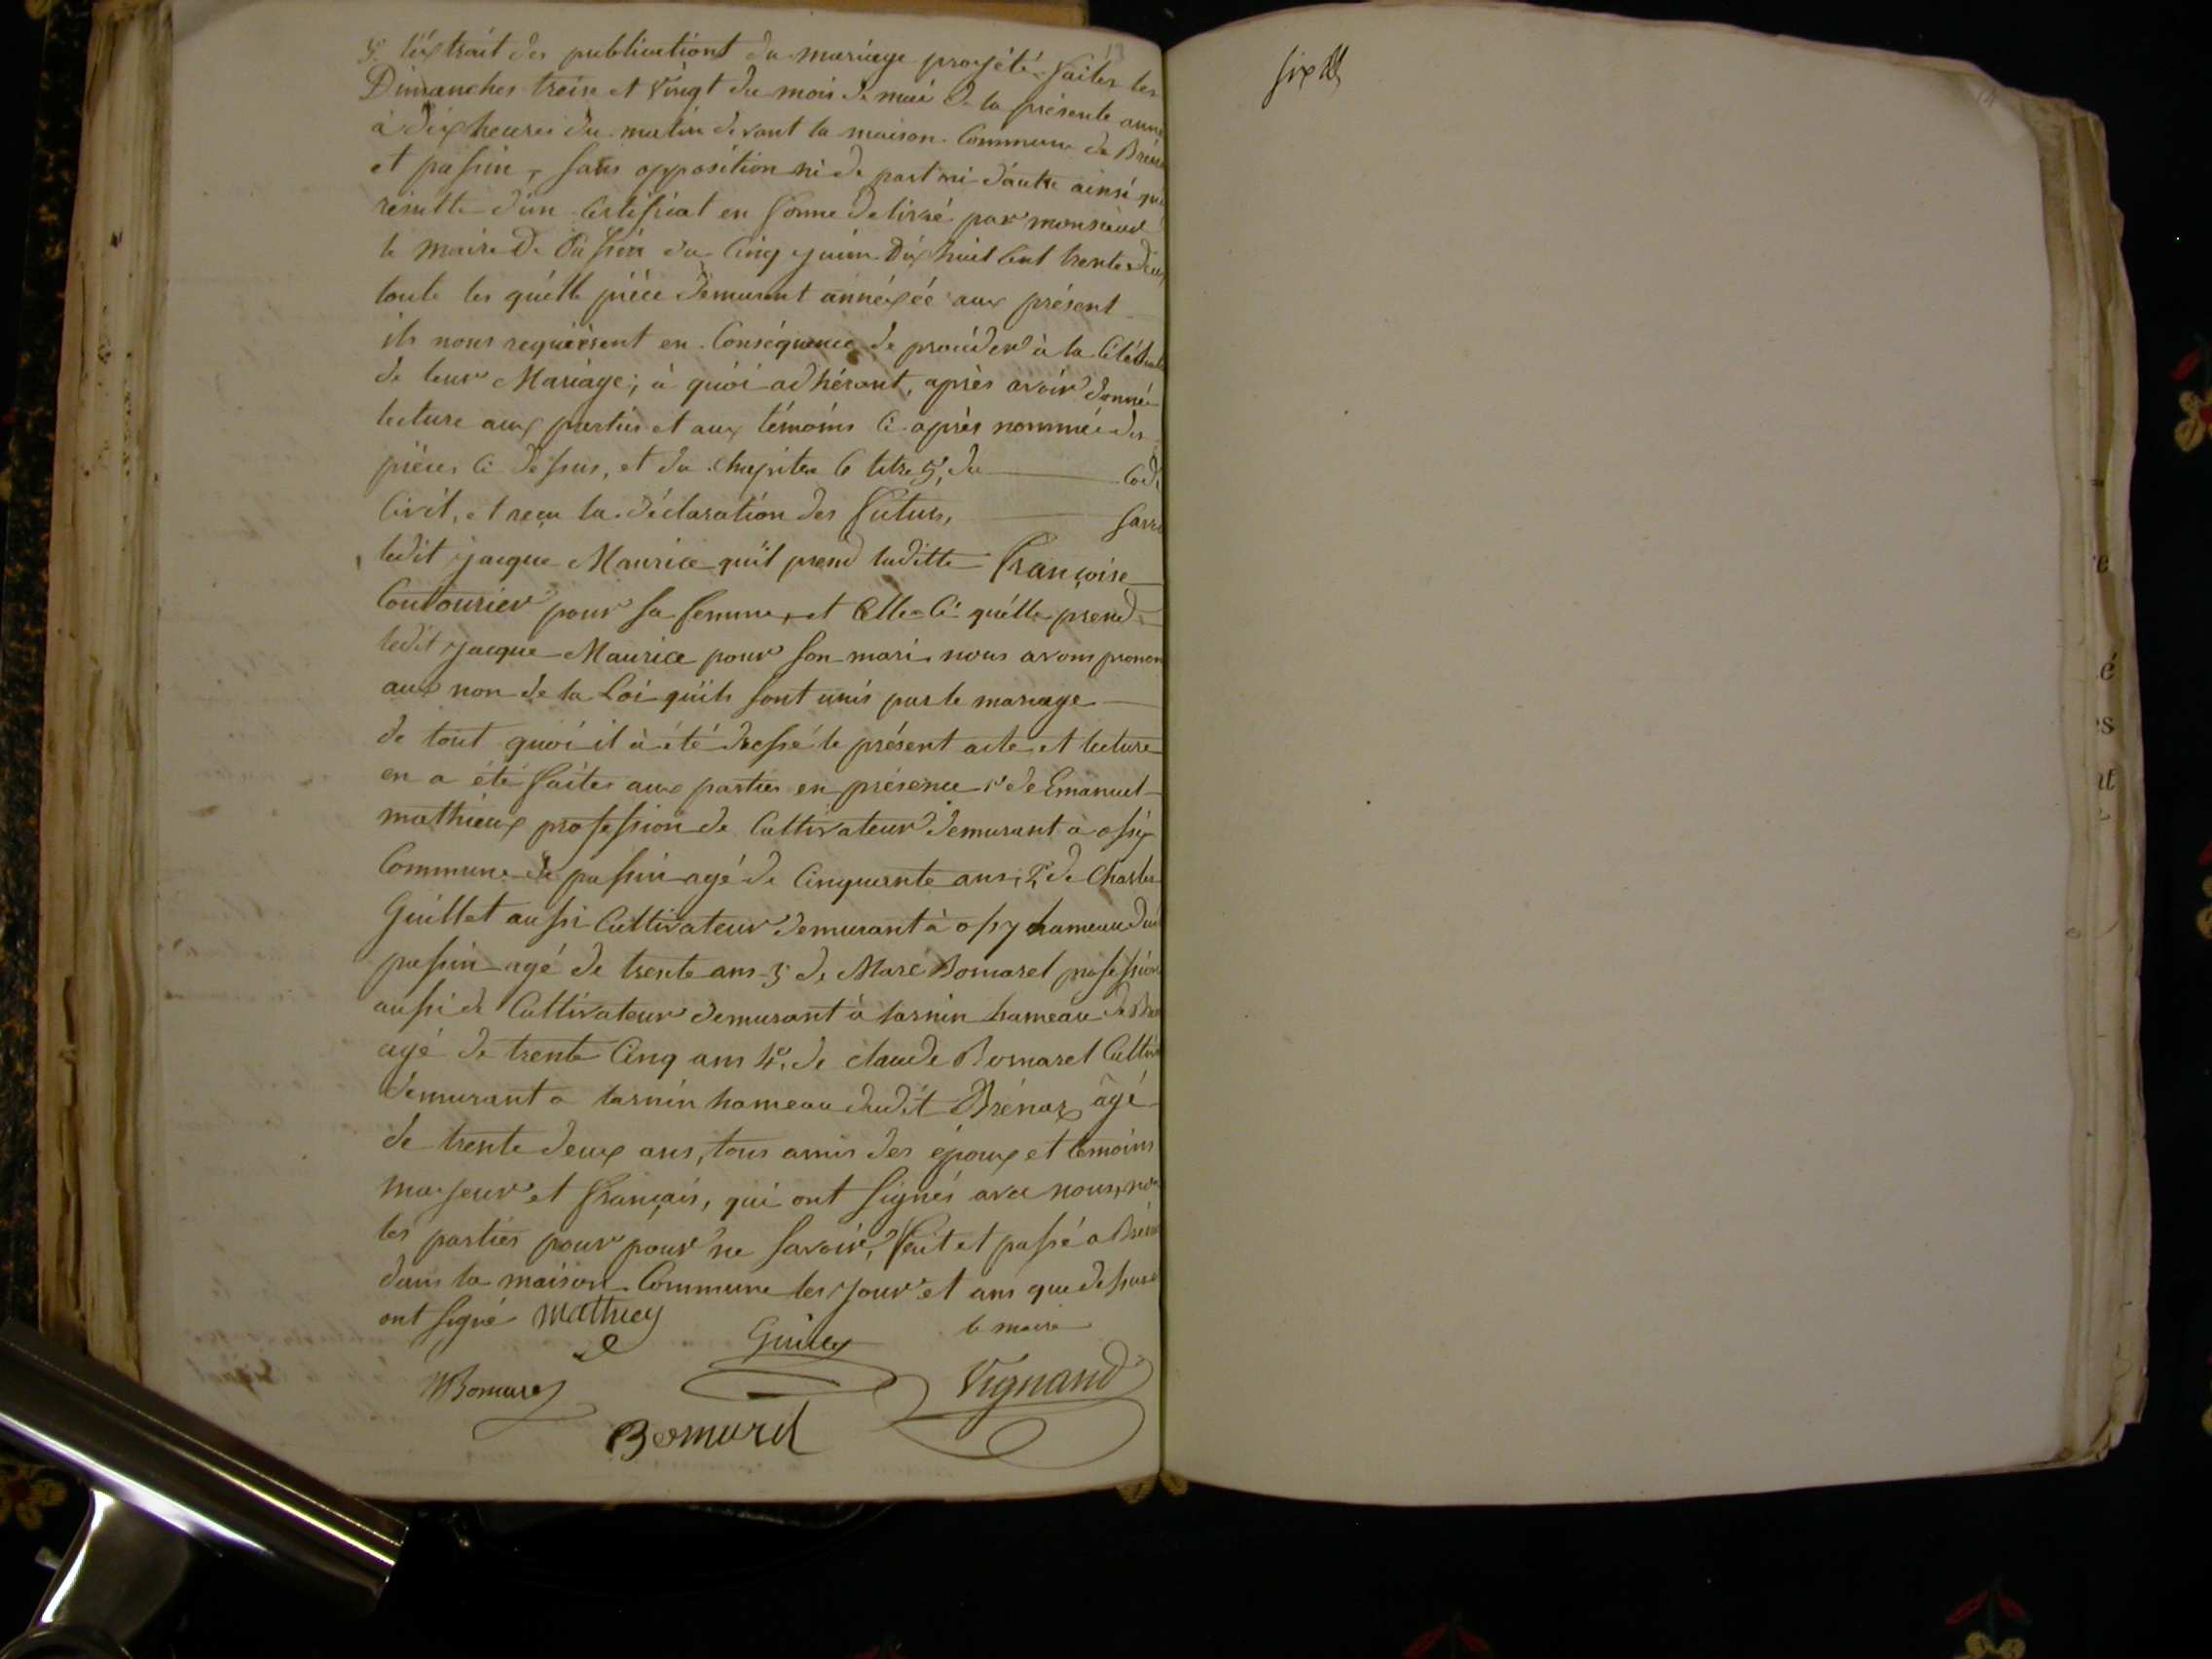 l'éxtrait des publicationt du mariage projété faites les
Dimanches treise et vingt du mois de mai de la présente anné
à dix heures du matin devant la maison Commune de Bréna
et passin, sans opposition ni de part ni d'autre ainsi qu'il
résulte d'un Certificat en forme delivré par monsieur
le maire De Passin du Cinq juin Dix huit Cent trente deux
toute les quélle pièce démurent annéxéé aux présent
ils nous requièrent en Conséquence de procéder à la Célébrat
de leur Mariage; à quoi adhérant, après avoir donné
lecture aux parties et aux témoins Ci-après nommé des
pièces Ci dessus, et du Chapitre 6 titre 5, du Code
Civil, et reçu la déclaration des futurs, savoir
ledit jacque Maurice qu'il prend laditte Françoise
Coutourier pour sa femme, et Celle-Ci qu'élle prend
ledit jacque Maurice pour son mari nous avons pronon
aux non de la Loi qu'ils sont unis par le mariage
de tout quoi il à été dressé le présent acte et lecture
en a été faites aux parties en présence 1° de Emanuel
mathieux profession de Cultivateur démurant à ossy
Commune de passin agé de Cinquante ans, 2° de Charles
Guillet aussi Cultivateur démurant à ossy hameau dud
passin agé de trente ans 3° de Marc Bomarel profession
aussi de Cultivateur démurant à tarnin hameau de Bré
agé de trente Cinq ans 4° de claude Bomarel Cultiv
démurant a tarnin hameau dudit Brénaz âgé
de trente deux ans, tous amis des époux et témoins
majeur et français, qui ont signés avec nous, non
les parties pour pour ne savoir, Fait et passé a Bréna
dans la maison Commune les jour et ans que dessus
ont signé Mathiey
Guillet le maire
MBomarel Vignand
Bomarel
six